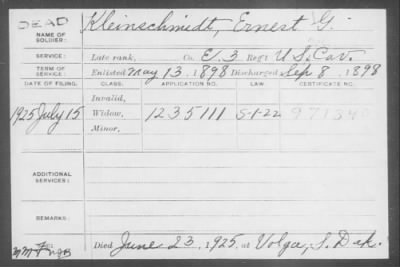 DEAD
NAME OF SOLDIER: Kleinschmidt, Ernest G.
SERVICE: Late rank, Co. E. 3 Reg't U.S. Cav.
TERM OF SERVICE: Enlisted May 13, 1898 Discharged Sep 8, 1898
DATE OF FILING. CLASS. APPLICATION NO. LAW. CERTIFICATE NO.
Invalid,
1925 July 15 Widow, 1235111 5-1-22 971340
Minor,
ADDITIONAL SERVICES:
REMARKS:
Died June 23, 1925, at Volga, S. Dak.